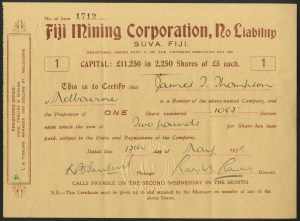 No. of Issue 1712
Fiji Mining Corporation, No Liability
SUVA, FIJI.
REGISTERED UNDER PART II OF THE VICTORIAN COMPANIES ACT
1 CAPITAL: £11,250 in 2,250 Shares of £5 each. 1
This is to Certify that James T. Thompson
of Melbourne is a Member of the above-named Company, and
the Proprietor of ONE Share numbered 1087
upon which the sum of Two pounds for Share has been
paid, subject to the Rules and Regulations of the Company.
Dated this day of May
Manager Director
CALLS PAYABLE ON THE SECOND WEDNESDAY IN THE MONTH.
N.B.—This Certificate must be given up to and retained by the Manager on transfer of any of the
above Shares.
REGISTERED OFFICE: